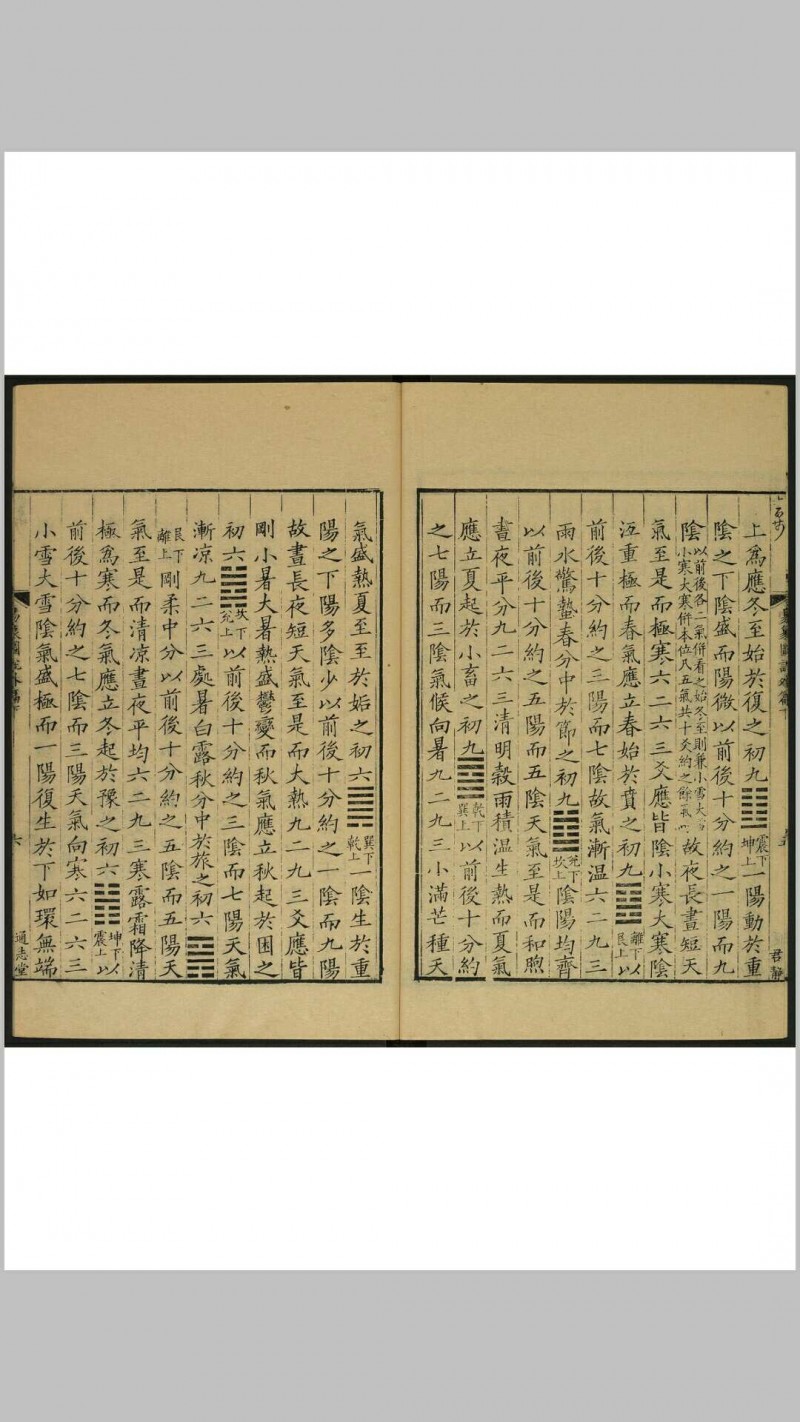 上爲應冬至始於復之初九䷗震下坤上一陽動於重
陰之下陰盛而陽微以前後十分約之一陽而九
陰以前後各二氣併看之始冬至則兼小雪大雪小寒大寒併本位凡五氣共十爻約之餘故夜長晝短天
氣至是而極寒六二六三爻應皆陰小寒大寒陰
沍重極而春氣應立春始於賁之初九䷕離下艮上以
前後十分約之三陽而七陰故氣漸温六二九三
雨水驚蟄春分中於節之初九䷻兊下坎上陰陽均齊
以前後十分約之五陽而五陰天氣至是而和煦
晝夜平分九二六三清明穀雨積温生熱而夏氣
應立夏起於小畜之初九䷈乾下巽上以前後十分約
之七陽而三陰氣候向暑九二九三小滿芒種天
君靜
氣盛熱夏至至於姤之初六䷫巽下乾上一陰生於重
陽之下陽多陰少以前後十分約之一陰而九陽
故晝長夜短天氣至是而大熱九二九三爻應皆
剛小暑大暑熱盛鬱變而秋氣應立秋起於困之
初六䷮坎下兊上以前後十分約之三陰而七陽天氣
漸凉九二六三處暑白露秋分中於旅之初六䷷
艮下離上剛柔中分以前後十分約之五陰而五陽天
氣至是而清凉晝夜平均六二九三寒露霜降清
極爲寒而冬氣應立冬起於豫之初六䷏坤下震上以
前後十分約之七陰而三陽天氣向寒六二六三
小雪大雪陰氣盛極而一陽復生於下如環無端
六
通志堂